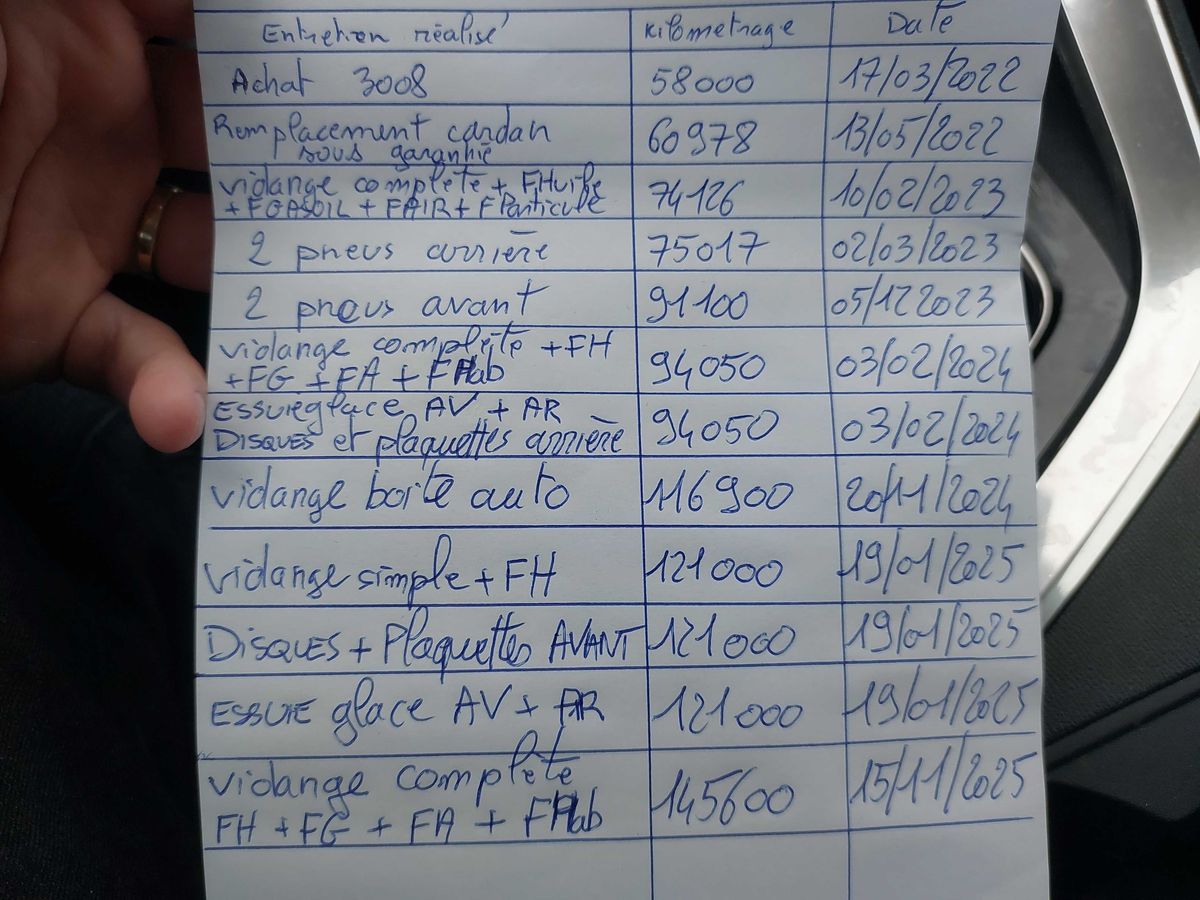 Entretien réalisé Kilometrage Date
Achat 3008 58000 17/03/2022
Remplacement cardan 60978 13/05/2022
sous garanhie
vidange complète + FHuile 74126 10/02/2023
+ FGASOIL + FAIR + FParticule
2 pneus arrière 75017 02/03/2023
2 pneus avant 91100 05/12 2023
vidange complète + FH 94050 03/02/2024
+ FG + FA + FHab
ESSUIE glace AV + AR 94050 03/02/2024
DISQUES et plaquettes arrière
vidange boite auto 116900 20/11/2024
vidange simple + FH 121000 19/01/2025
DISQUES + Plaquettes AVANT 121000 19/01/2025
ESSUIE glace AV + AR 121000 19/01/2025
vidange complète 145600 15/11/2025
FH + FG + FA + FHab